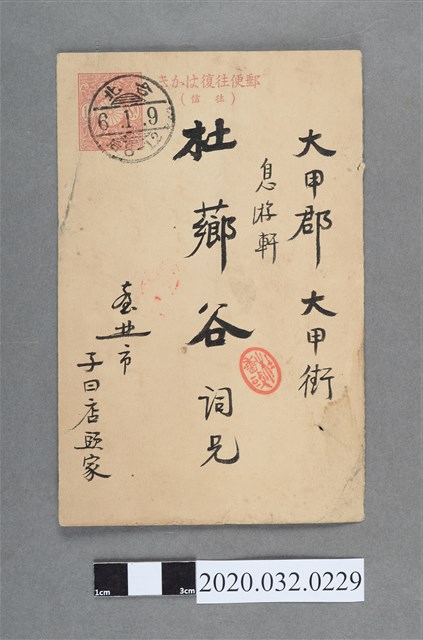 郵便往復はかき
（往信）
台北
6.1.9
大甲郡大甲街、
息游軒
杜薌谷詞兄
臺北市
子曰店頭家
1cm
3cm
2020.032.0229